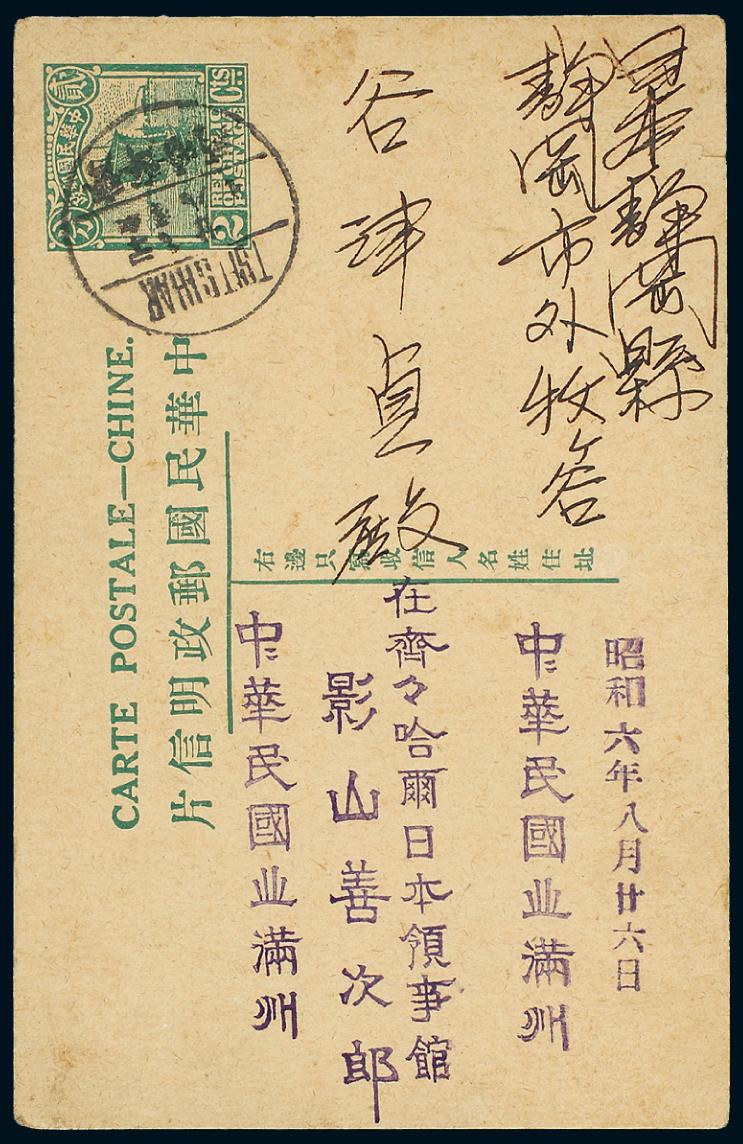 日本靜岡縣
靜岡市外牧谷
谷津貞殿
中華民國郵政明信片
CARTE POSTALE—CHINE.
貳
分
2
CTS
TSITSIHAR
右邊只寫收信人名姓住址
昭和六年八月廿六日
中華民國北滿州
在齊々哈爾日本領事館
影山善次郎
中華民國北滿州